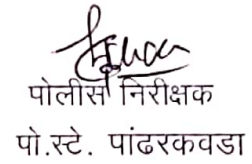 पोलीस निरीक्षक
पो.स्टे. पांढरकवडा